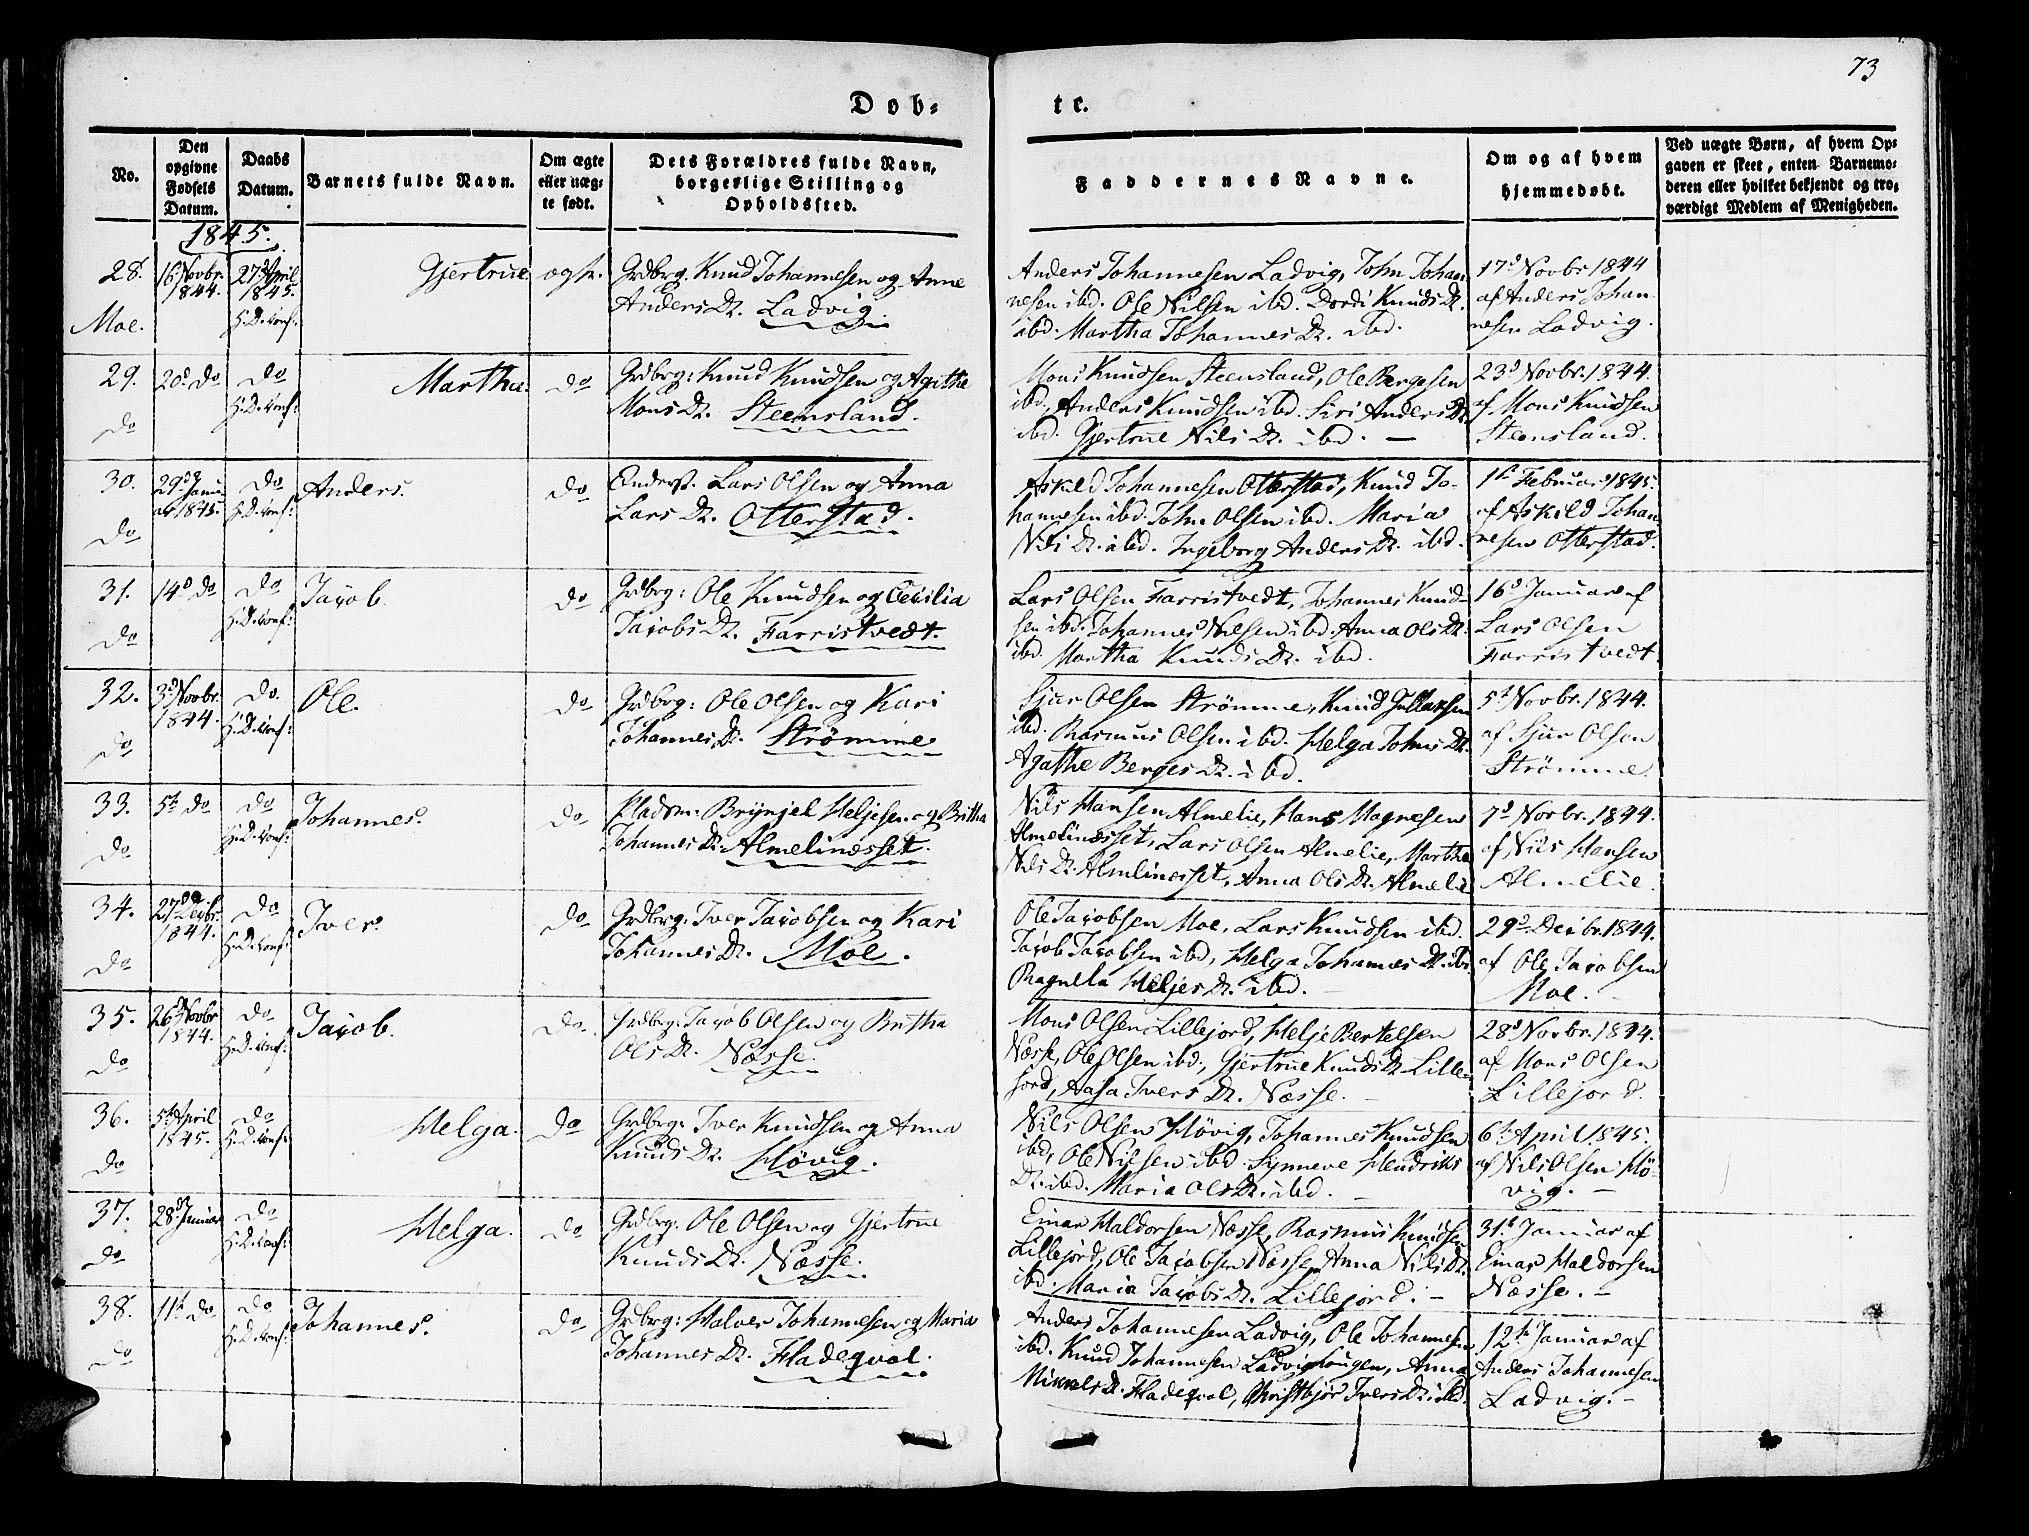 73
Døb-
te.
No.
Den opgivne Fødsels Datum.
Daabs Datum.
Barnets fulde Navn.
Om ægte eller uæg-te født.
Dets Forældres fulde Navn, borgerlige Stilling og Opholdssted.
Faddernes Navne.
Om og af hvem hjemmedøbt.
Ved uægte Børn, af hvem Op-
gaven er skeet, enten Barnemo-
deren eller hvilket bekjendt og tro-
værdigt Medlem af Menigheden.
1845.
28. 16. Novbr. 27d April Gjertrue Grdbrg. Knud Johannesen og Anne
1844. 1845. Anders Dr. Ladvig.
Moe.
Anders Johannesen Ladvig, John Johan-
nesen ibd. Ole Nilsen ibd. Dordi Knuds Dr.
ibd. Martha Johannes Dr. ibd.
17d Novbr 1844
af Anders Johan-
nesen Ladvig.
29. 20d do do Martha. do Grdbrg: Knud Knudsen og Agathe
do Mons Dr. Steensland.
Mons Knudsen Steensland, Ole Bergesen
ibd. Anders Knudsen ibd. Siri Anders Dr.
ibd. Gjertrue Nils Dr. ibd. —
23d Novbr. 1844.
af Mons Knudsen
Steensland.
30. 29d Janu- do Anders. do Lars Olsen og Anna
ar 1845. Lars Dr. Otterstad.
do
Askild Johannesen Otterstad, Knud Jo-
hannesen ibd. John Olsen ibd. Maria
Nils Dr. ibd. Ingeborg Anders Dr. ibd.
1st Februar 1845.
af Askild Johan-
nesen Otterstad.
31. 14d do do Jacob. do Grdbrg: Ole Knudsen og Cecilia
do Jacobs Dr. Farristvedt.
Lars Olsen Farristvedt, Johannes Knud-
sen ibd. Johannes Nilsen ibd. Anna Ols Dr.
ibd. Martha Knuds Dr. ibd.
16d Januar af
Lars Olsen
Farristvedt.
32. 3d Novbr. do. Ole. do Grdbrg: Ole Olsen og Kari
1844. Johannes Dr. Strömme
do
Sjur Olsen Strömme, Knud Gullaksen
ibd. Rasmus Olsen ibd. Helga Johns Dr.
Agathe Berges Dr. ibd.
5t Novbr. 1844.
af Sjur Olsen
Strömme.
33. 5te do do Johannes. do Pladsm: Brynjel Heljesen og Britha
do Johannes Dr. Almelinæsset.
Nils Hansen Almelie, Hans Magnesen
Almelinæsset, Lars Olsen Almelie, Martha
Nils Dr. Almlinæsset, Anna Ols Dr. Almelie
7d Novbr. 1844.
af Nils Hansen
Almelie.
34. 27d Decbr. do Iver. do Grdbrg: Iver Jacobsen og Kari
1844. Johannes Dr. Moe.
do
Ole Jacobsen Moe, Lars Knudsen ibd.
Jacob Jacobsen ibd, Helga Johannes Dr. ibd
Ragnilla Heljes Dr. ibd.
29d Decbr. 1844.
af Ole Jacobsen
Moe. —
35. 26d Novbr do Jacob. do. Grdbrg: Jacob Olsen og Britha
1844. Ols Dr. Næsse.
do
Mons Olsen Lillejord, Helje Bertelsen
Næsse, Ole Olsen ibd, Gjertrue Knuds Dr. Lille-
jord, Aasa Ivers Dr. Næsse. —
28d Novbr. 1844.
af Mons Olsen
Lillejord.
36. 5te April do Helga. do Grdbrg: Iver Knudsen og Anna
1845. Knuds Dr. Hövig.
do
Nils Olsen Hövig, Johannes Knudsen
ibd, Ole Nilsen ibd. Synneve Hendriks
Dr. ibd. Maria Ols Dr. ibd. —
6te April 1845.
af Nils Olsen Hö-
vig. —
37. 28d Januar do Helga. do Grdbrg: Ole Olsen og Gjertrue
do Knuds Dr. Næsse.
Einar Haldorsen Næsse, Rasmus Knudsen
Lillejord, Ole Jacobsen Næsse, Anna Nils Dr.
ibd. Maria Jacobs Dr. Lillejord. —
31t Januar af
Einar Haldorsen
Næsse. —
38. 11te do do Johannes. do Grdbrg: Halver Johannesen og Maria
do Johannes Dr. Fladeqval.
Anders Johannesen Ladvig, Ole Johannesen
ibd. Knud Johannesen Ladvighougen, Anna
Mikkels Dr. Fladeqval, Christbjør Ivers Dr. ibd.
12te Januar af
Anders Johannesen
Ladvig. —